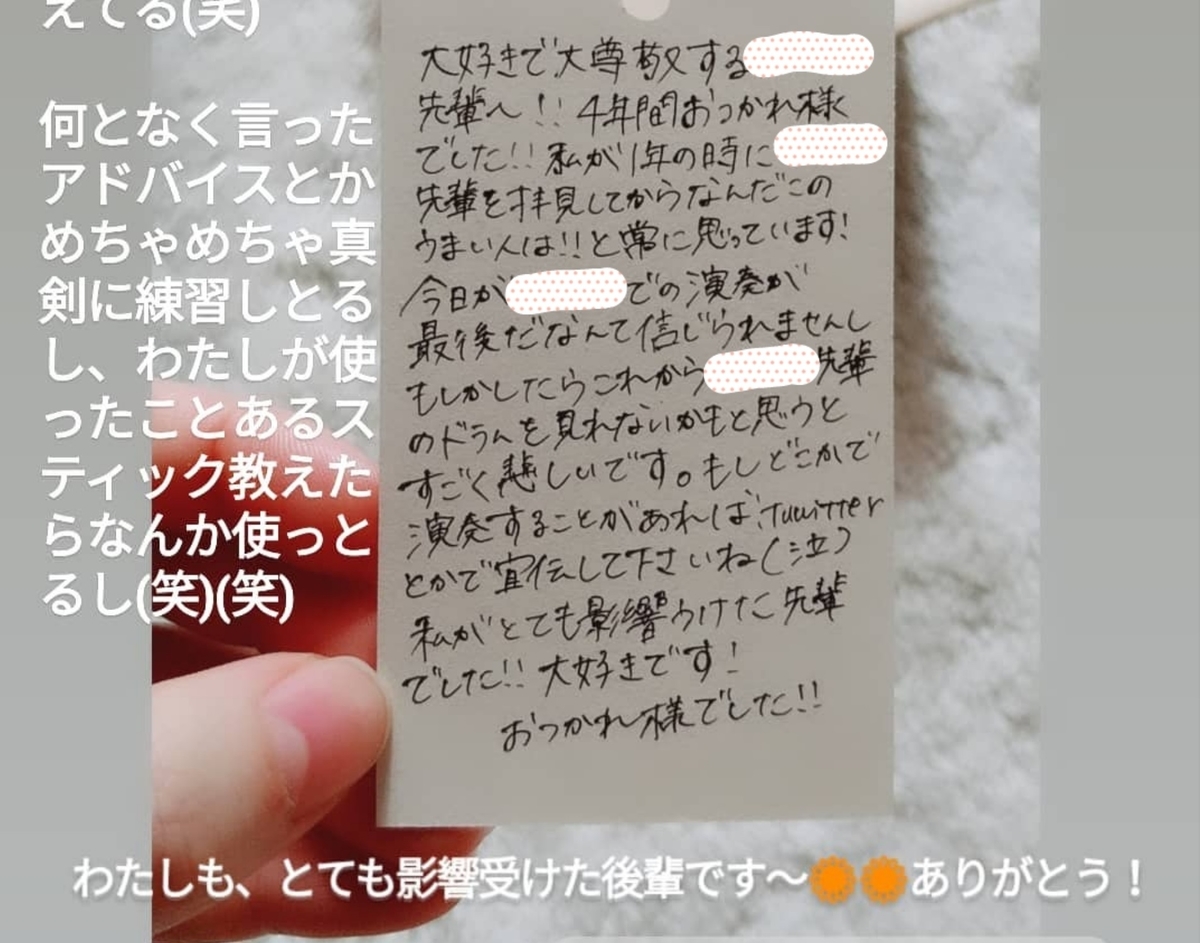 えてる(笑)
何となく言った
アドバイスとか
めちゃめちゃ真
剣に練習しとる
し、わたしが使
ったことあるス
ティック教えた
らなんか使っと
るし(笑)(笑)
大好きで大尊敬する
先輩へ!! 4年間おつかれ様
でした!! 私が1年の時に
先輩を拝見してからなんだこの
うまい人は!!と常に思っています!
今日が での演奏が
最後だなんて信じられませんし
もしかしたらこれから 先輩
のドラムを見れないかもと思うと
すごく悲しいです。もしどこかで
演奏することがあれば、twitter
とかで宣伝して下さいね(泣)
私がとても影響うけた先輩
でした!! 大好きです!
おつかれ様でした!!
わたしも、とても影響受けた後輩です〜🌼🌼ありがとう!